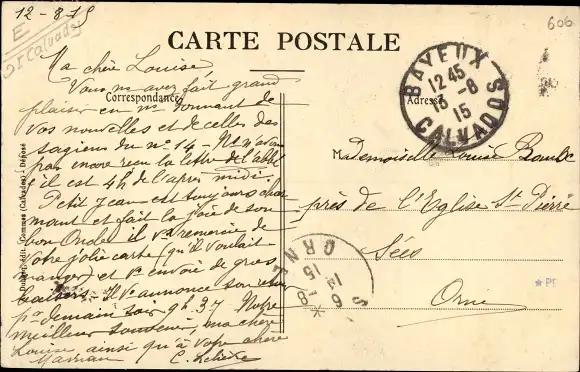 12-8-15
606
E
St Calvados
CARTE POSTALE
Correspondance
Adresse
BAYEUX
12 45
13 -8
15
CALVADOS
Ma chère Louise
Vous m'avez fait grand
plaisir en me donnant de
vos nouvelles et de celles des
du n° 14 - Ns n'avons
pas encore reçu la lettre de l'abbé
il est 4h de l'après midi.
Petit Jean est toujours char
mant et fait la joie de son
bon Oncle il Vs remercie de
Votre jolie carte (qu'il voulait
manger) et Vs envoie de gros
baisers. Il Vs annonce son retour
pr demain soir 9h.37 Notre
meilleur souvenir, ma chère
Louise ainsi qu'à votre chère
Maman
Mademoiselle Louise
près de l'Eglise St Pierre
Sées
Orne
ORNE
édit. Commes (Calvados) - Déposé